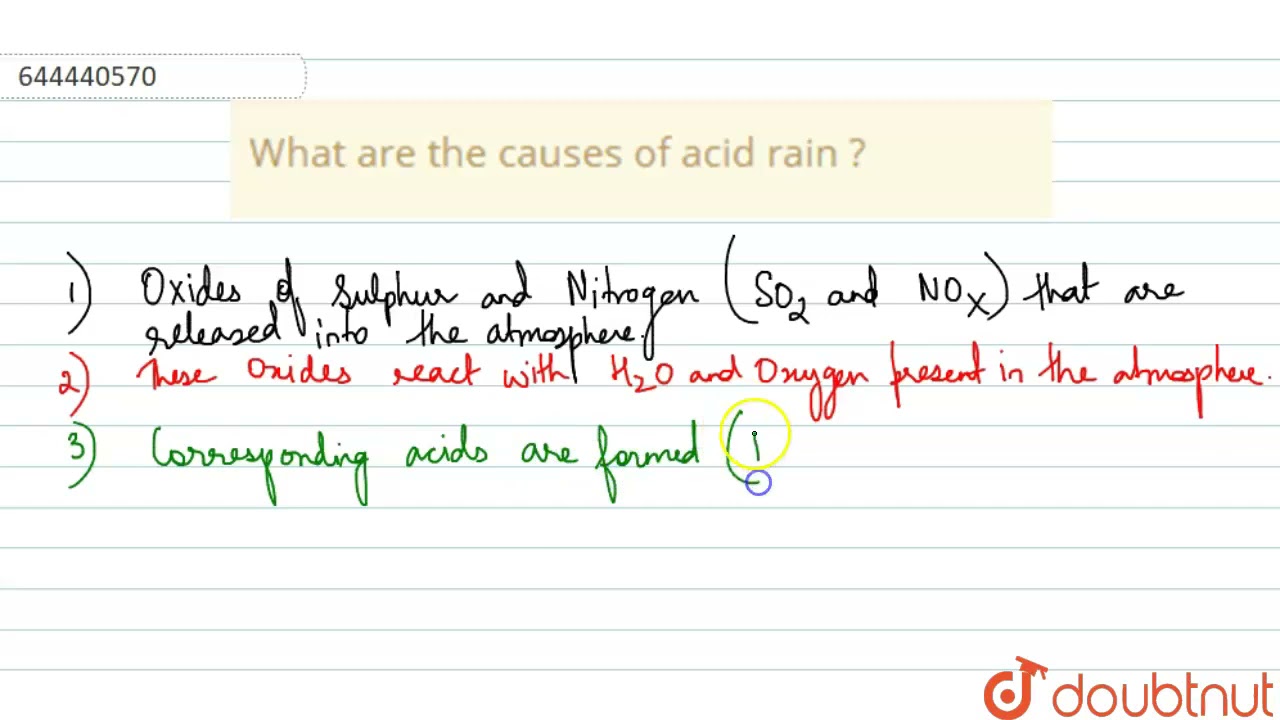 644440570
What are the causes of acid rain ?
1) Oxides of Sulphur and Nitrogen (SO2 and NOx) that are
released into the atmosphere.
2) These Oxides react with H2O and Oxygen present in the atmosphere.
3) Corresponding acids are formed (
doubtnut